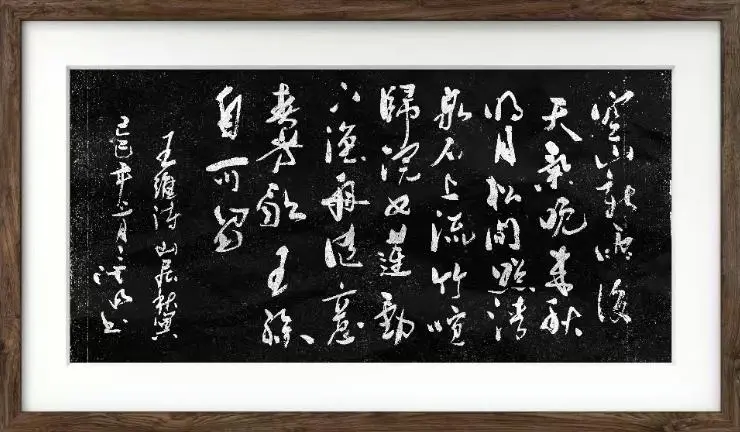 空山新後
天氣晚來秋
明月松間照清
泉石上流竹喧
歸浣女蓮動
下漁舟隨意
春芳歇王孫
自可留
王維詩山居秋暝
己巳年六月